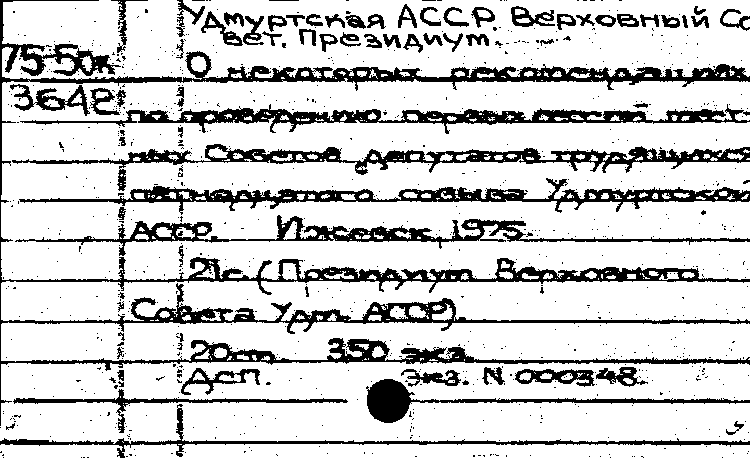 Удмуртская АССР. Верховный Со
вет. Президиум.
75-50к О некоторых рекомендациях
3642 по проведению первых сессий мест-
ных Советов депутатов трудящихся
пятнадцатого созыва Удмуртской
АССР. Ижевск 1975.
21с. (Президиум Верховного
Совета Удм. АССР).
20см. 350 экз.
ДСП. Экз. N 000348.